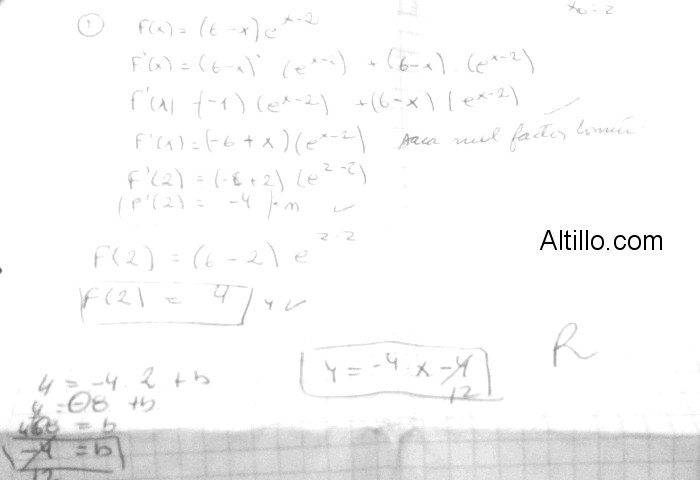 ① f(x) = (6-x) e^{x-2} x₀ = 2
f'(x) = (6-x)' (e^{x-2}) + (6-x) . (e^{x-2})
f'(x) (-1) (e^{x-2}) + (6-x) (e^{x-2})
f'(x) = (-6+x) (e^{x-2}) saca mal factor común.
f'(2) = (-6+2) (e^{2-2})
(f'(2) = -4) = m ✓
f(2) = (6-2) e^{2-2}
f(2) = 4 y ✓
Altillo.com
y = -4 . x -4
12
R
4 = -4 . 2 + b
4 = -8 + b
4+8 = b
-4 = b
12